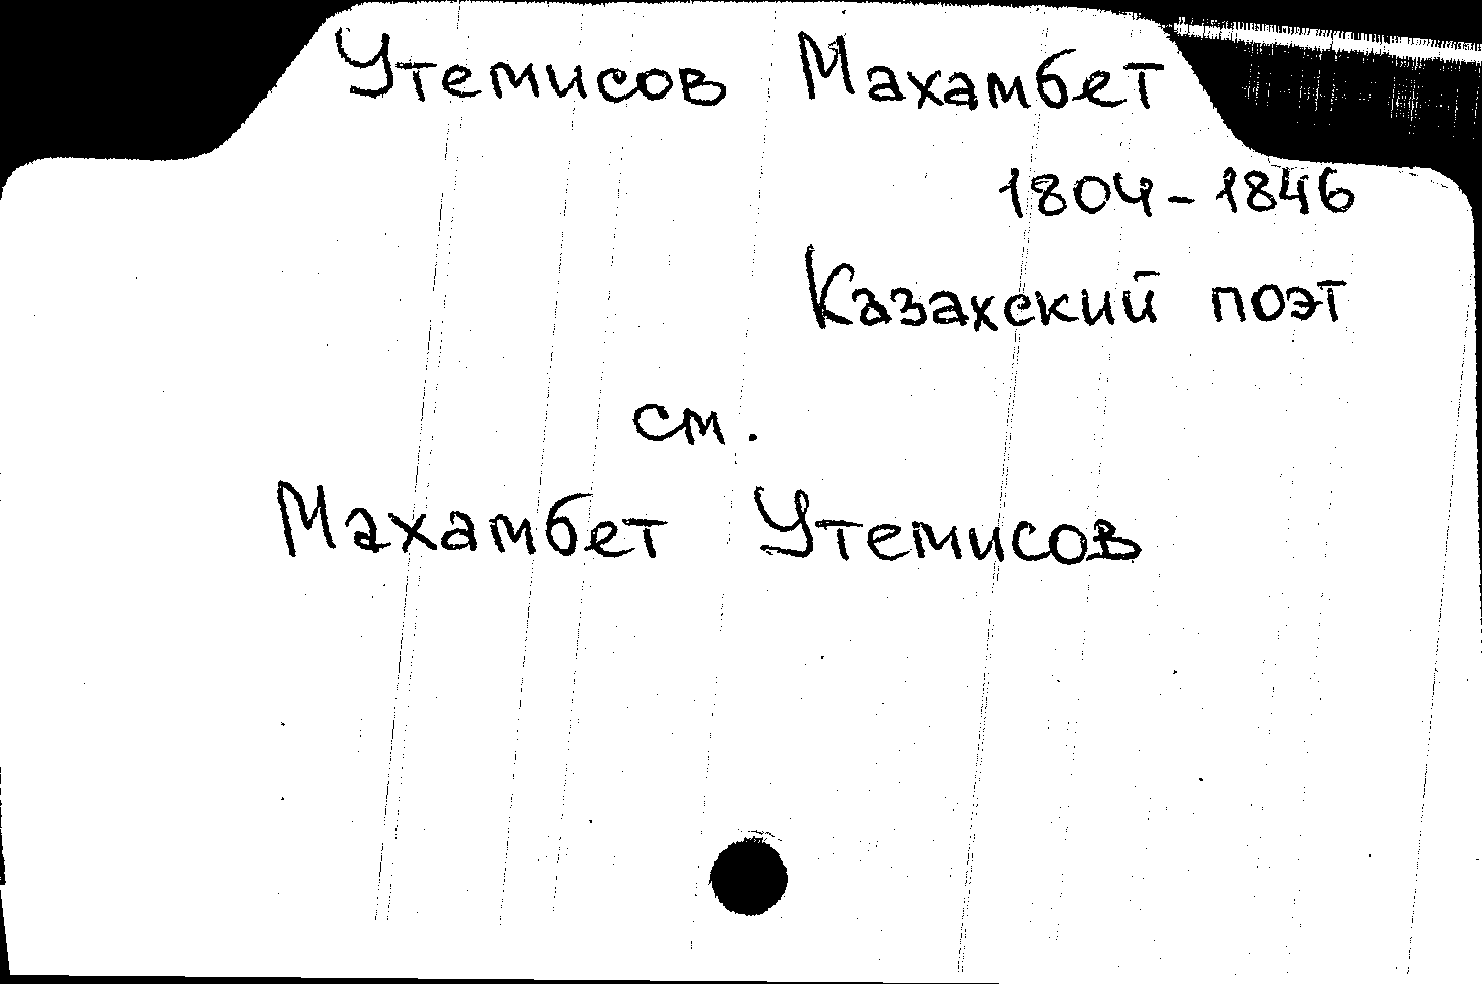 Утемисов Махамбет
1804-1846
Казахский поэт
см.
Махамбет Утемисов